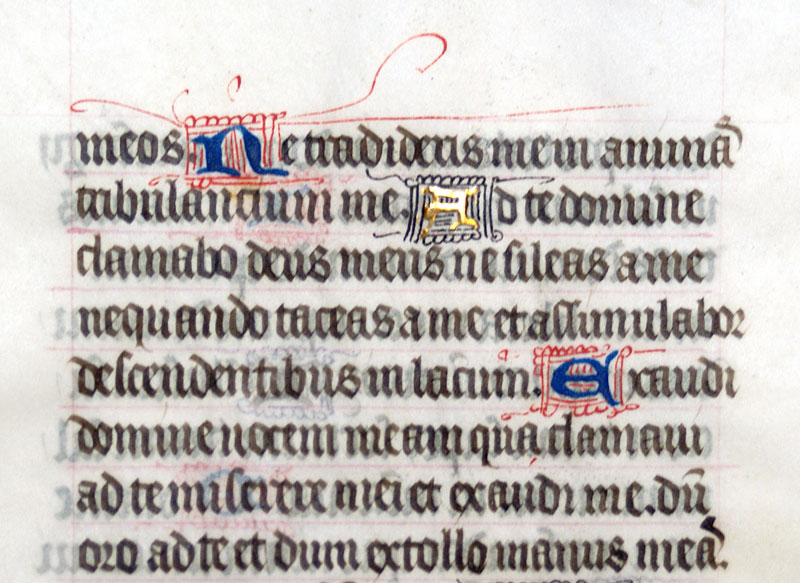 meos. Ne tradideris me in animā
tribulantium me. Ad te domine
clamabo deus meus ne sileas a me
nequando taceas a me et assimulabor
descendentibus in lacum. Exaudi
domine vocem meam qua clamavi
ad te miserere mei et exaudi me. dū
oro ad te et dum extollo manus meā.